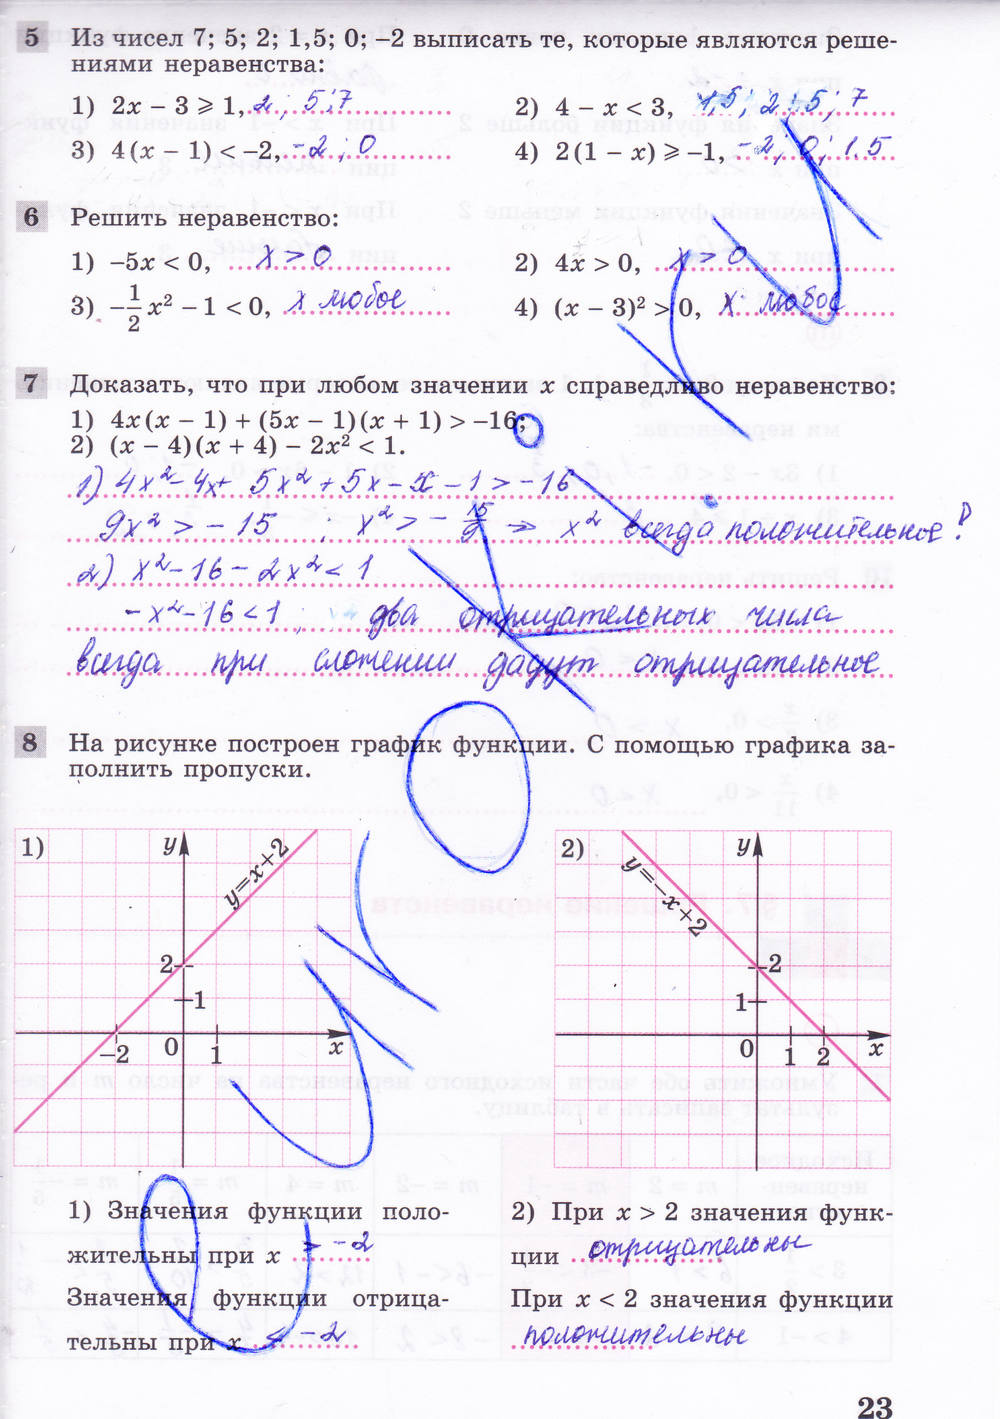 5 Из чисел 7; 5; 2; 1,5; 0; –2 выписать те, которые являются реше-
ниями неравенства:
1) 2x – 3 ⩾ 1, 2 ; 5 ; 7
2) 4 – x < 3, 1,5 ; 2 ; 5 ; 7
3) 4(x – 1) < –2, –2 ; 0
4) 2(1 – x) ⩾ –1, –2 ; 0 ; 1.5
6 Решить неравенство:
1) –5x < 0, x > 0
2) 4x > 0, x > 0
3) –1/2 x² – 1 < 0, x любое
4) (x – 3)² > 0, x любое
7 Доказать, что при любом значении x справедливо неравенство:
1) 4x(x – 1) + (5x – 1)(x + 1) > –16;
2) (x – 4)(x + 4) – 2x² < 1.
1) 4x² – 4x + 5x² + 5x – x – 1 > –16
9x² > – 15 ; x² > – 15/9 ⇒ x² всегда положительное !
2) x² – 16 – 2x² < 1
– x² – 16 < 1 ; два отрицательных числа
всегда при сложении дадут отрицательное
8 На рисунке построен график функции. С помощью графика за-
полнить пропуски.
1) y
y=x+2
2
1
–2 0 1 x
2) y
y=–x+2
2
1
0 1 2 x
1) Значения функции поло-
жительны при x > –2
Значения функции отрица-
тельны при x < –2
2) При x > 2 значения функ-
ции отрицательны
При x < 2 значения функции
положительны
23